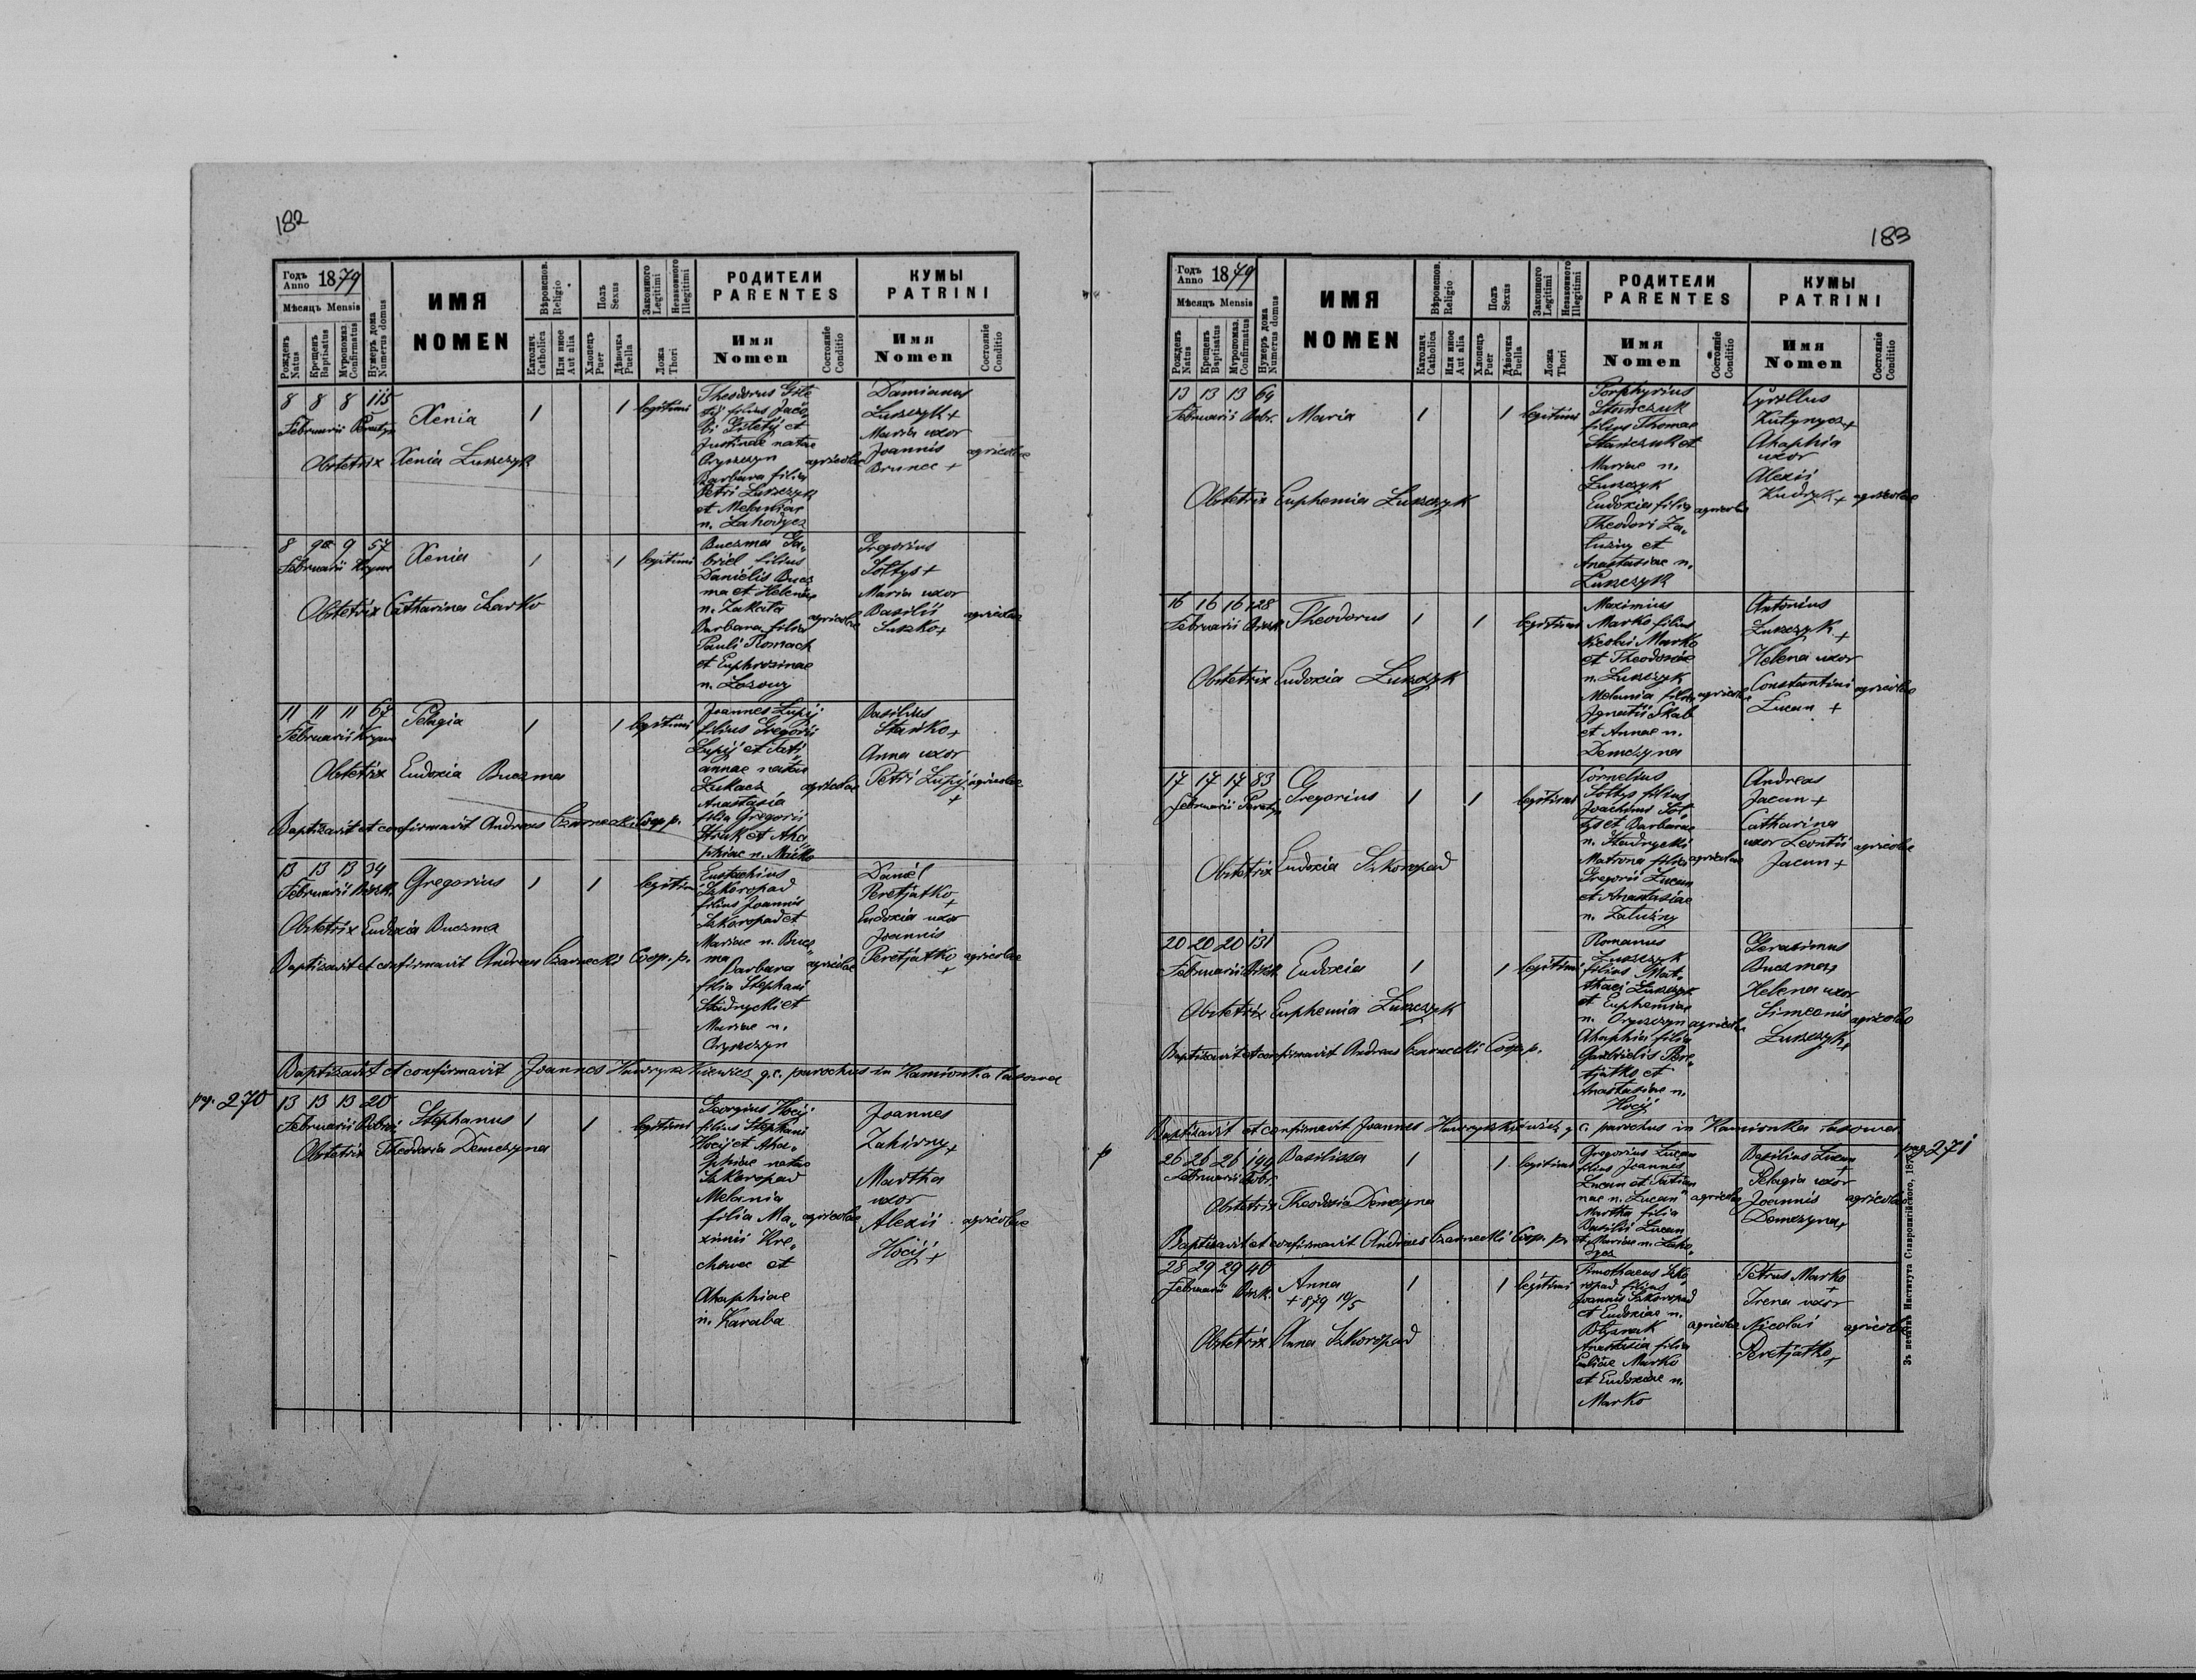 182
Годъ Anno 1879
Мѣсяцъ Mensis
Рожденъ Natus
Крещенъ Baptisatus
Мѵропомаз. Confirmatus
Нумеръ дома Numerus domus
ИМЯ
NOMEN
Вѣроиспов. Religio
Католич. Catholica
Или иное Aut alia
Полъ Sexus
Хлопецъ Puer
Дѣвочка Puella
Законного Legitimi
Незаконного Illegitimi
Ложа Thori
РОДИТЕЛИ
PARENTES
Имя Nomen
Состояніе Conditio
КУМЫ
PATRINI
Имя Nomen
Состояніе Conditio
8 8 8 115
Februarii
Xenia 1 1 legitimi
Obstetrix Xenia Luszczyk
Theodorus
filius Jaco„
bi et
Justinae natae
Oryszczyn agricolae
Barbara filia
Petri Luszczyk
et Melaniae
n. Zahodycz
Damianus
Luszczyk +
Maria uxor
Joannis
Brunec + agricolae
8 9 9 57
Februarii
Xenia 1 1 legitimi
Obstetrix Catharina Szarko
Buczma Ga„
briel filius
Danielis Bucz
ma et Helenae
n. Zakala
Barbara filia agricolae
Pauli Romach
et Euphrosinae
n. Losowy
Gregorius
Soltys +
Maria uxor
Basilii agricolae
Suszko +
11 11 11 67
Februarii
Pelagia 1 1 legitimi
Obstetrix Eudoxia Buczma
Joannes Lupij
filius Gregorii
Lupij et Tati
annae natae
Lukacz agricolae
Anastasia
filia Gregorii
Hrak et Aha
phiae n. Macko
Basilius
Stasko +
Anna uxor
Petri Lupij agricolae
+
Baptisavit et confirmavit Andreas Czarnecki Coop. p.
13 13 13 34
Februarii
Gregorius 1 1 legitimi
Obstetrix Eudoxia Buczma
Baptisavit et confirmavit Andreas Czarnecki Coop. p.
Eustachius
Szkoropad
filius Joannis
Szkoropad et
Mariae n. Bucz
ma
Barbara agricolae
filia Stephani
Stadnycki et
Mariae n.
Oryszczyn
Daniel
Peretjatko
+
Eudoxia uxor
Joannis
Peretjatko agricolae
+
Baptisavit et confirmavit Joannes Hawryszkiewicz g. c. parochus in Kamionka lasowa
pag. 270
13 13 13 20
Februarii
Stephanus 1 1 legitimi
Obstetrix Theodosia Demczyna
Georgius Hocij
filius Stephani
Hocij et Aha„
phiae natae
Szkoropad
Melania
filia Ma„ agricolae
ximii Kre„
chowec et
Ahaphiae
n. Karaba
Joannes
Zahirny +
Martha
uxor
Alexii agricolae
Hocij +
183
Годъ Anno 1879
Мѣсяцъ Mensis
Рожденъ Natus
Крещенъ Baptisatus
Мѵропомаз. Confirmatus
Нумеръ дома Numerus domus
ИМЯ
NOMEN
Вѣроиспов. Religio
Католич. Catholica
Или иное Aut alia
Полъ Sexus
Хлопецъ Puer
Дѣвочка Puella
Законного Legitimi
Незаконного Illegitimi
Ложа Thori
РОДИТЕЛИ
PARENTES
Имя Nomen
Состояніе Conditio
КУМЫ
PATRINI
Имя Nomen
Состояніе Conditio
13 13 13 69
Februarii
Maria 1 1 legitimi
Obstetrix Euphemia Luszczyk
Porphyrius
Stanczuk
filius Thomae
Stanczuk et
Mariae n.
Luszczyk
Eudoxia filia agricolae
Theodori Za„
luzny et
Anastasiae n.
Luszczyk
Cyrillus
Kutynycz +
Ahaphia
uxor
Alexii
Kudryk + agricolae
16 16 16 128
Februarii
Theodorus 1 1 legitimi
Obstetrix Eudoxia Luszczyk
Maximus
Marko filius
Nicolai Marko
et Theodosiae
n. Luszczyk
Melania filia agricolae
Ignatii Skab
et Annae n.
Demczyna
Antonius
Luszczyk
+
Helena uxor
Constantini agricolae
Lucan +
17 17 17 83
Februarii
Gregorius 1 1 legitimi
Obstetrix Eudoxia Szkoropad
Cornelius
Soltys filius
Joachimi Sol
tys et Barbarae
n. Stadnycki
Matrona filia agricolae
Gregorii Lucan
et Anastasiae
n. Zaluzny
Andreas
Jacun +
Catharina
uxor Leontii agricolae
Jacun +
20 20 20 131
Februarii
Eudoxia 1 1 legitimi
Obstetrix Euphemia Luszczyk
Baptisavit et confirmavit Andreas Czarnecki Coop. p.
Romanus
Luszczyk
filius Mat„
thaei Luszczyk
et Euphemiae
n. Oryszczyn agricolae
Ahaphia filia
Gabrielis Pere
tjatko et
Anastasiae n.
Hocij
Gerasimus
Buczma +
Helena uxor
Simeonis agricolae
Luszczyk +
Baptisavit et confirmavit Joannes Hawryszkiewicz g. c. parochus in Kamionka lasowa
pag 271
26 26 26 199
Februarii
Basilissa 1 1 legitimi
Obstetrix Theodosia Demczyna
Gregorius Lucan
filius Joannes
Lucan et Tatian
nae n. Lucan agricolae
Martha filia
Basilii Lucan
et Mariae n. Zaho„
dycz
Basilius Lucan
+
Pelagia uxor
Joannis agricolae
Demczyna +
Baptisavit et confirmavit Andreas Czarnecki Coop. p.
28 29 29 40
Februarii
Anna 1 1 legitimi
+ 879 19/5
Obstetrix Anna Szkoropad
Timothaeus Szko
ropad filius
Joannis Szkoropad
et Eudoxiae n.
agricolae
Anastasia filia
Eliae Marko
et Eudoxiae n.
Marko
Petrus Marko
+
Irena uxor
Nicolai agricolae
Peretjatko
+
Зъ печатнѣ Института Ставропигійского, 187